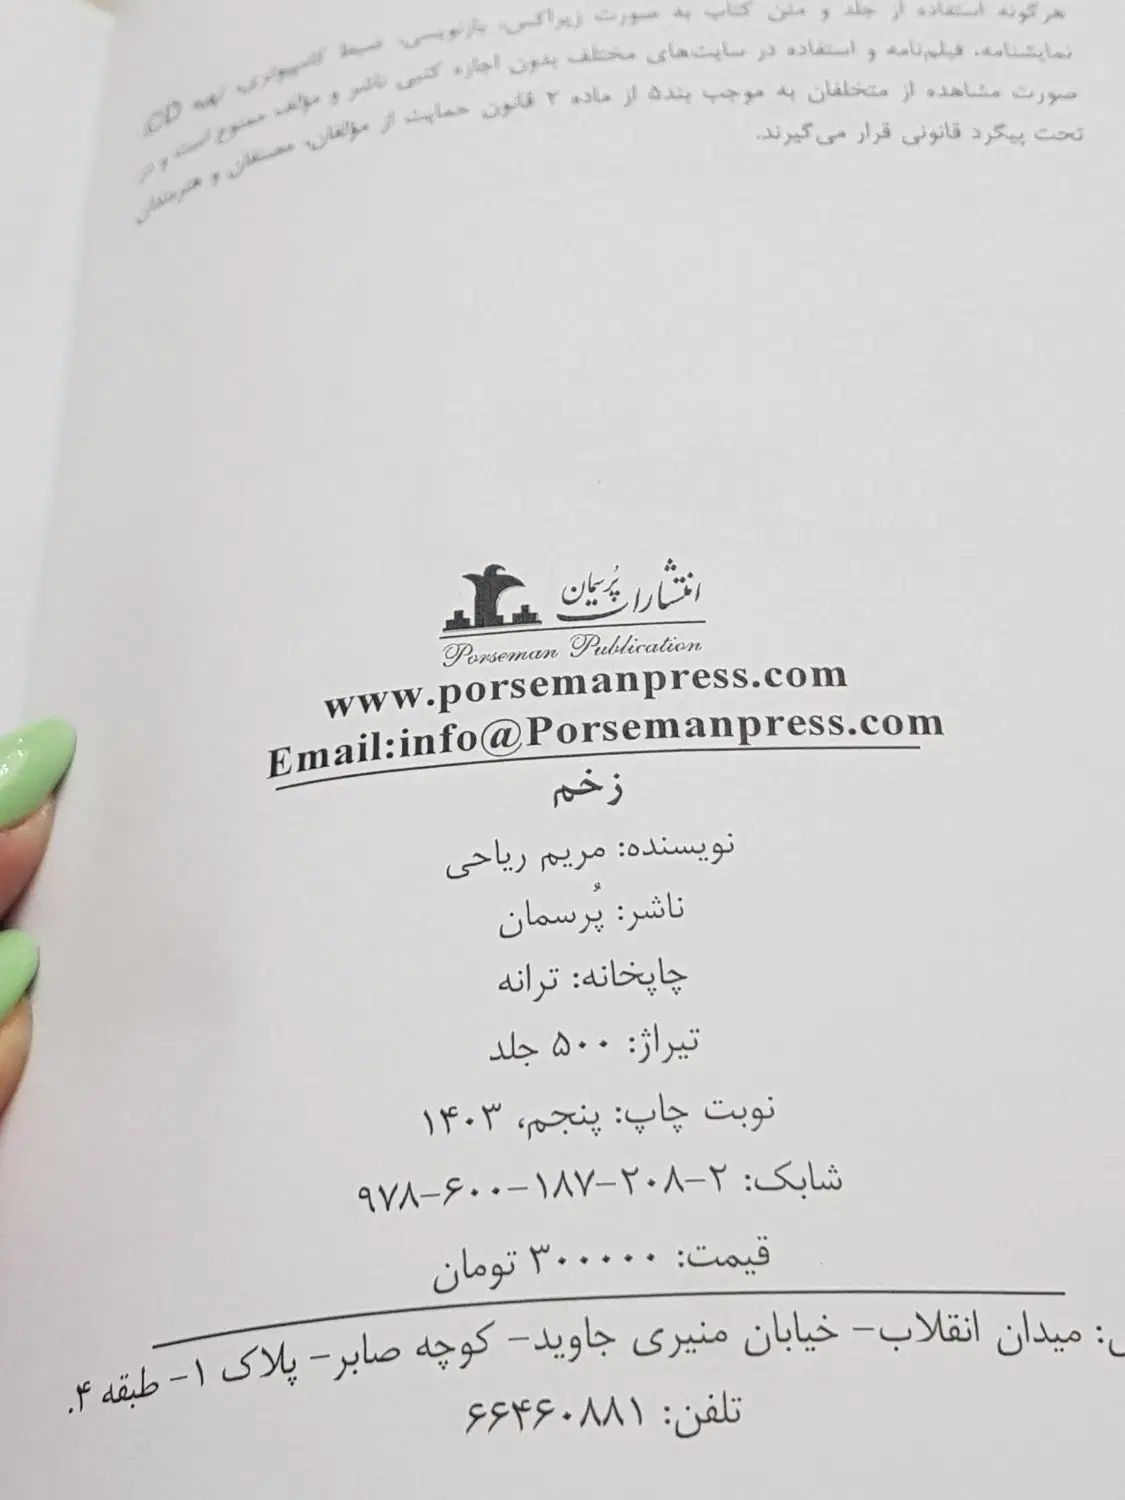 هرگونه استفاده از جلد و متن کتاب به صورت زیراکس، بازنویسی، ضبط کامپیوتری، تهیه CD،
نمایشنامه، فیلم‌نامه و استفاده در سایت‌های مختلف بدون اجازه کتبی ناشر و مؤلف ممنوع است و در
صورت مشاهده از متخلفان به موجب بند۵ از ماده ۲ قانون حمایت از مؤلفان، مصنفان و هنرمندان
تحت پیگرد قانونی قرار می‌گیرند.
انتشارات پُرسمان
Porseman Publication
www.porsemanpress.com
Email:info@Porsemanpress.com
زخم
نویسنده: مریم ریاحی
ناشر: پُرسمان
چاپخانه: ترانه
تیراژ: ۵۰۰ جلد
نوبت چاپ: پنجم، ۱۴۰۳
شابک: ۲-۲۰۸-۱۸۷-۶۰۰-۹۷۸
قیمت: ۳۰۰۰۰۰ تومان
میدان انقلاب- خیابان منیری جاوید- کوچه صابر- پلاک ۱- طبقه ۴.
تلفن: ۶۶۴۶۰۸۸۱